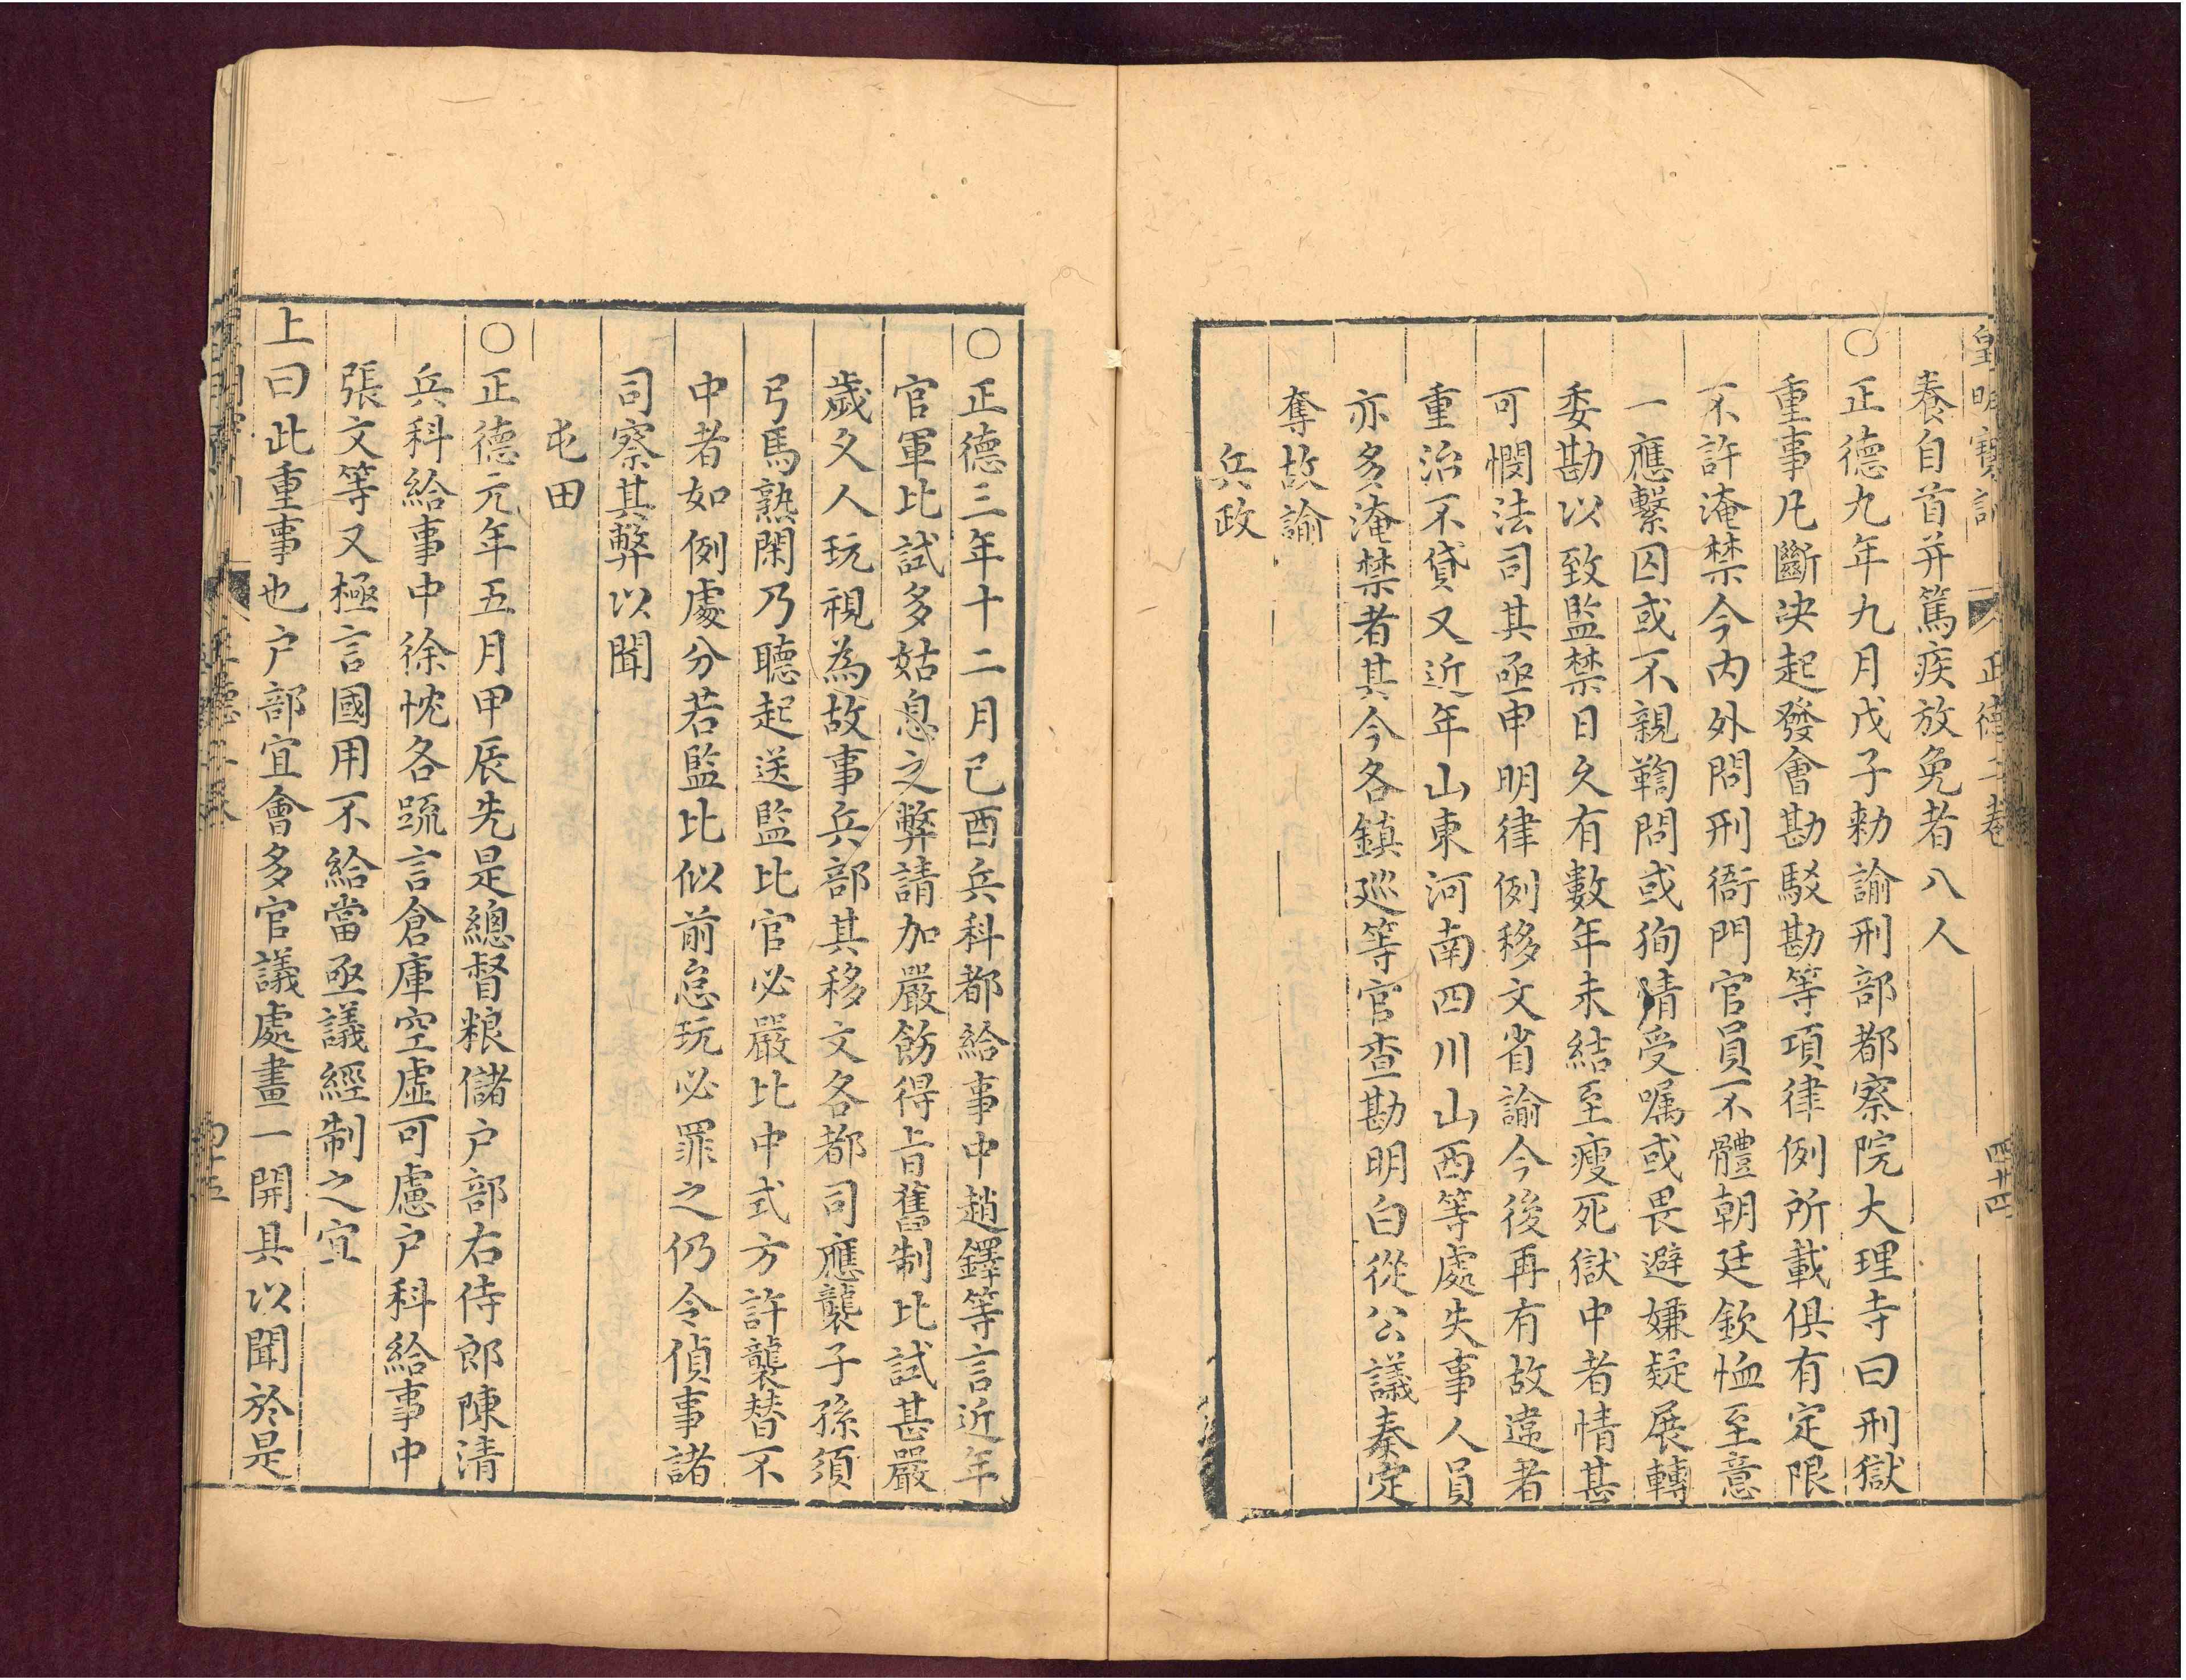 皇明寶訓 正德二卷 四十四
養自首并篤疾放免者八人
○正德九年九月戊子勑諭刑部都察院大理寺曰刑獄
重事凡斷决起發會勘駁勘等項律例所載俱有定限
不許淹禁今內外問刑衙門官員不體朝廷欽恤至意
一應繫囚或不親鞫問或狥情受嘱或畏避嫌疑展轉
委勘以致監禁日久有數年未結至瘦死獄中者情甚
可憫法司其亟申明律例移文省諭今後再有故違者
重治不貸又近年山東河南四川山西等處失事人員
亦多淹禁者其今各鎮廵等官查勘明白從公議奏定
奪故諭
兵政
○正德三年十二月己酉兵科都給事中趙鐸等言近年
官軍比試多姑息之弊請加嚴飭得旨舊制比試甚嚴
歲久人玩視為故事兵部其移文各都司應襲子孫須
弓馬熟閑乃聽起送監比官必嚴比中式方許襲替不
中者如例處分若監比似前怠玩必罪之仍令偵事諸
司察其弊以聞
屯田
○正德元年五月甲辰先是總督粮儲户部右侍郎陳清
兵科給事中徐忱各疏言倉庫空虛可慮户科給事中
張文等又極言國用不給當亟議經制之宜
上曰此重事也户部宜會多官議處畫一開具以聞於是